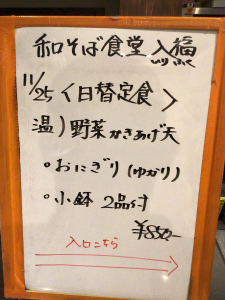 和そば食堂 入福
いりふく
11/25 〈日替定食〉
温)野菜かきあげ天
・おにぎり(ゆかり)
・小鉢 2品付
¥850-
入口こちら